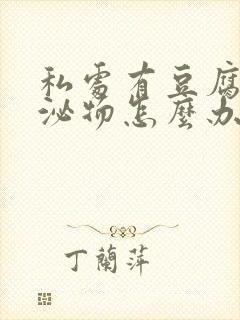 私處有豆腐
泌物怎麼办
丁蘭萍